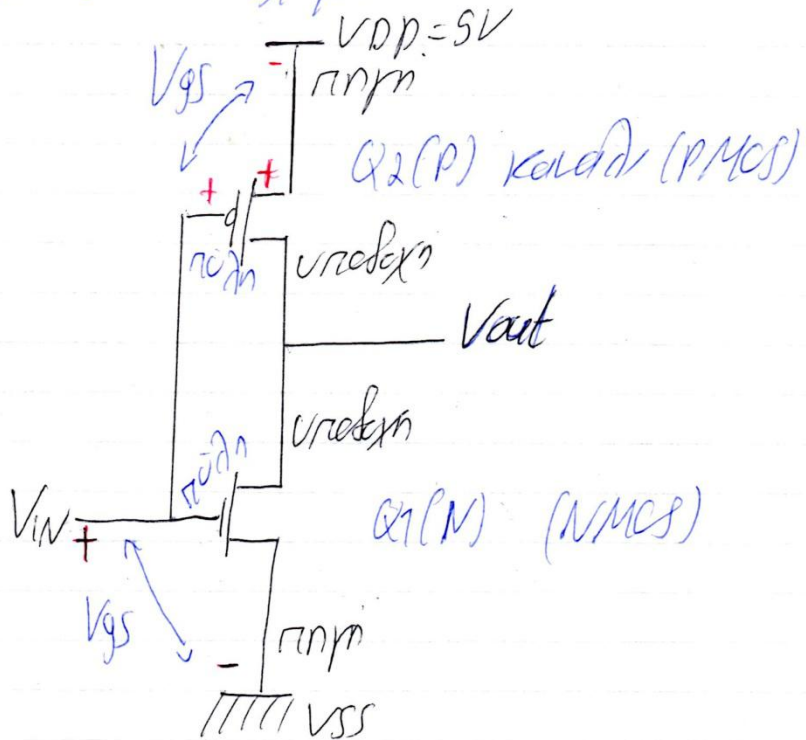 VDD=5V
Vgs
πηγή
Q2(P) κανάλι (PMOS)
πύλη
υποδοχή
Vout
υποδοχή
πύλη
VIN
Q1(N) (NMOS)
Vgs
πηγή
VSS